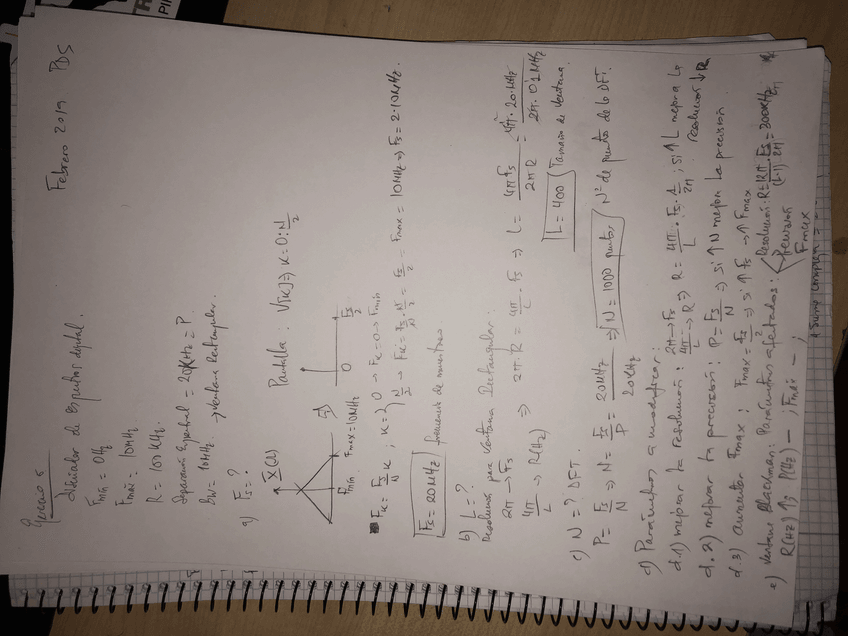 Febrero 2019 PDS
Diseñador de espectro digital.
Fmin = 0Hz
Fmax = 10MHz
R = 100KHz.
Separación Espectral = 20KHz = P
BW = 10MHz. → Ventana Rectangular.
a) Fs = ?
X(Ω)
Fmin. Fmax=10MHz
0 Fs/2
Pantalla : V[K] ⇒ K = 0:N/2
FK = Fs/N K ; K = { 0 → FK = 0 → Fmin
N/2 → FK = Fs/N · N/2 = Fs/2 = Fmax = 10MHz ⇒ Fs = 2·10MHz.
Fs = 20MHz frecuencia de muestreo
b) L = ?
Resolución para Ventana Rectangular.
2π → Fs
4π/L → R(Hz) ⇒ 2π·R = 4π/L · Fs ⇒ L = 4π Fs / 2π·R = 4π · 20·MHz / 2π · 0'1MHz
L = 400 Tamaño de Ventana.
c) N = ? DFT.
P = Fs/N ⇒ N = Fs/P = 20MHz/20KHz ⇒ N = 1000 puntos Nº de puntos de la DFT.
d) Parámetros a modificar:
d.1) mejorar la resolución: 2π → Fs
4π/L → R ⇒ R = 4π/L · Fs · 1/2π ; si ↑ L mejora la resolución ↓R
d.2) mejorar la precisión: P = Fs/N ⇒ si ↑ N mejora la precisión.
d.3) aumentar Fmax: Fmax = Fs/2 ⇒ si ↑ Fs → ↑ Fmax
e) Ventana Blackman: Parámetros afectados: Resolución: R = 12π/(L-1) · Fs/2π = 300KHz
Precisión
Fmax
R(Hz) ↑ ; P(Hz) — ; Fmax — ;